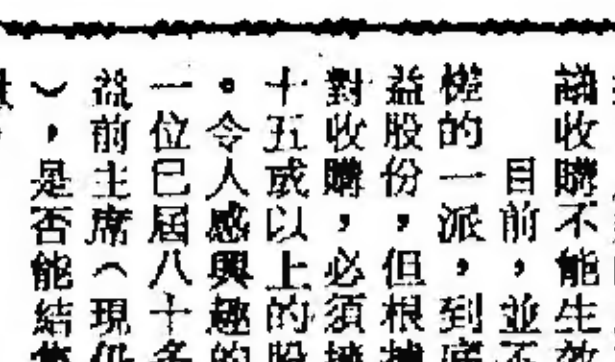 收購不能生
目前，並不
的一派，到底
益股份，但根據
對收購，必須
十五或以上的股
。令人感興趣的
一位已屆八十多
益前主席（現仍
），是否能結